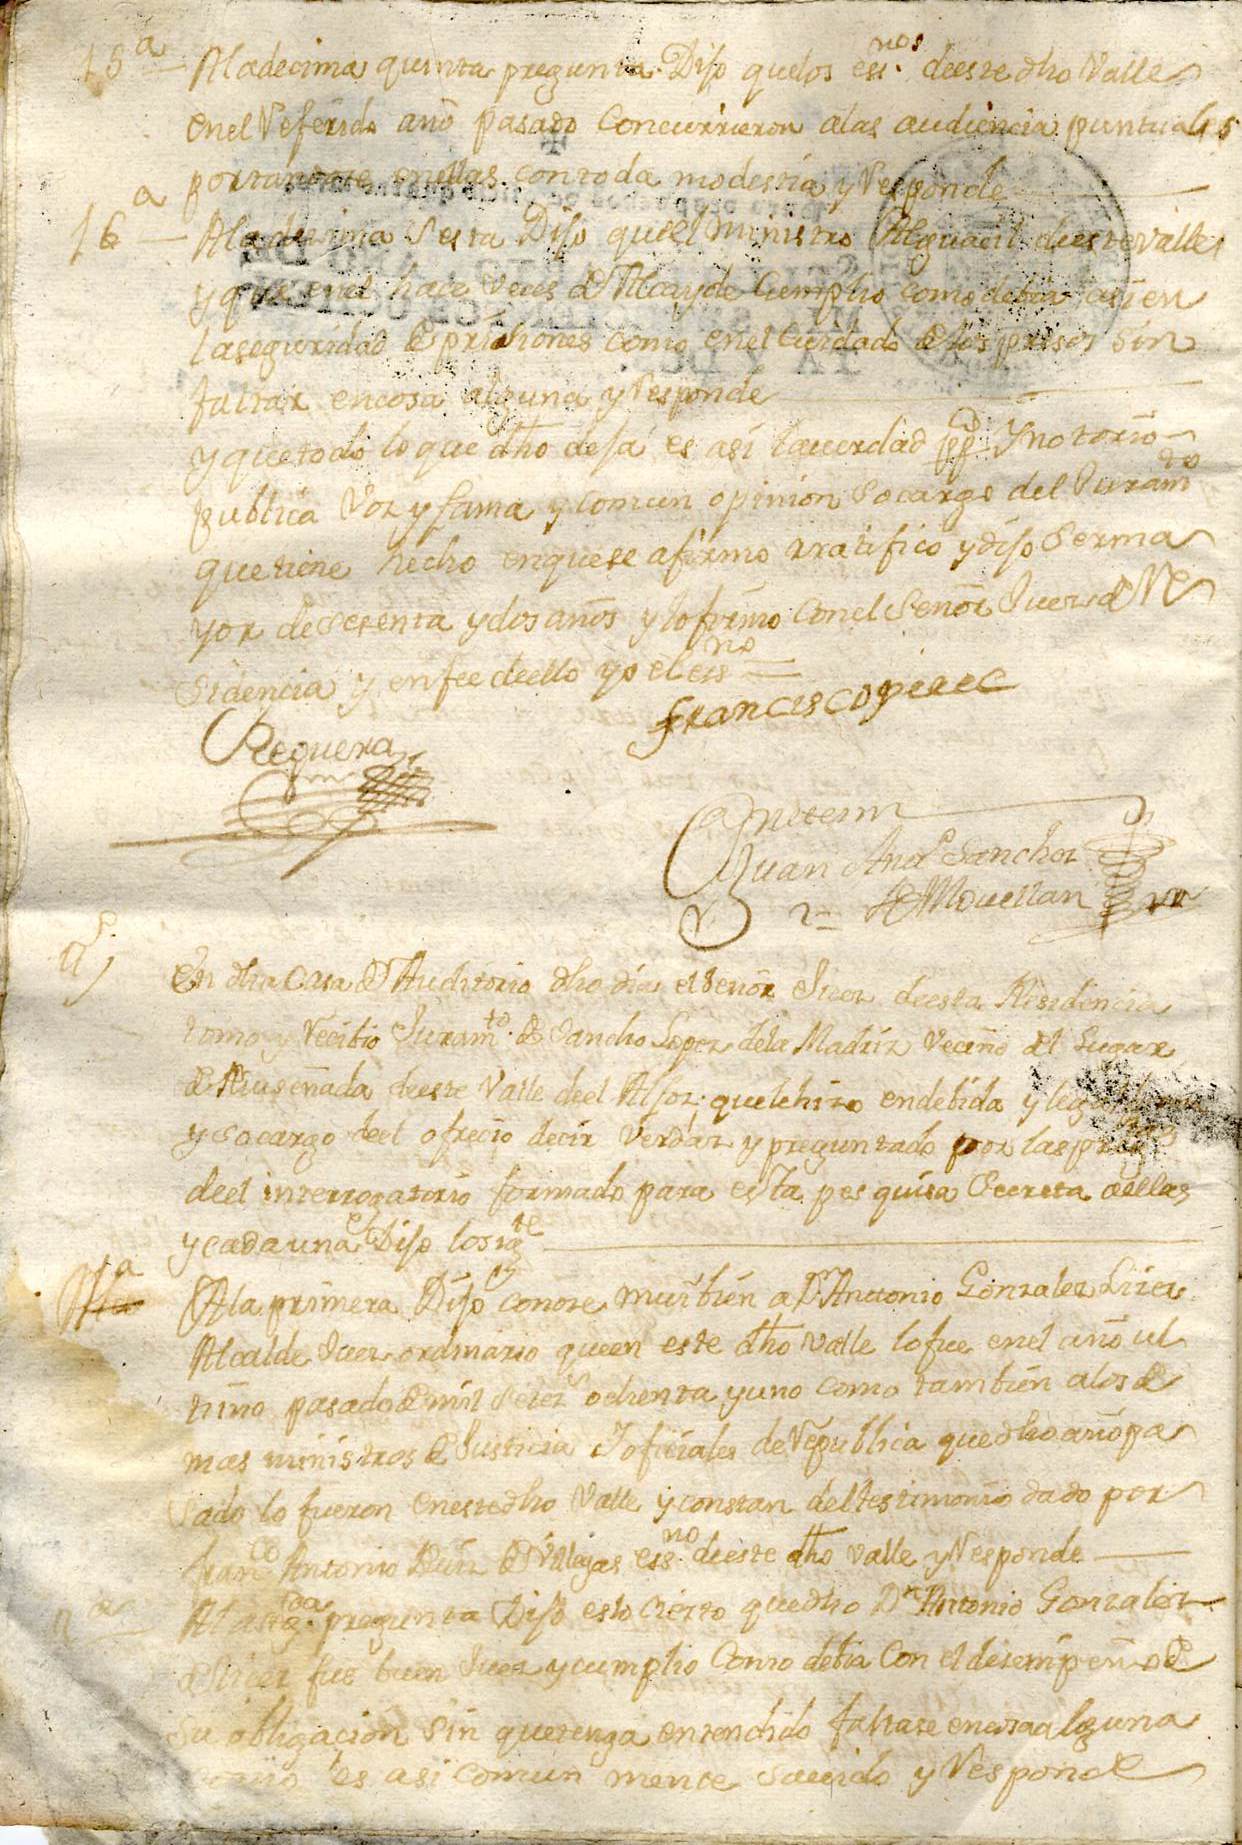 15ª Aladecima quinta pregunta Dijo quelos essnos deeste dho Valle
enel Referido año pasado Concurrieron alas audiencia puntuales
portandose enellas con toda modestia y Responde
16ª Aladecima Sesta Dijo queel Ministro Alguacil deeste valle
y que enel hace veces de Alcayde Cumplio como debia asi en
laseguridad de prisiones como enel Cuidado de los presos sin
faltar encosa alguna y Responde
y que todo lo que dho deja es asi laverdad ppco y notorio
publica Voz y fama y comun opinion Socargo del Juramto
que tiene hecho enquese afirmo rratifico y dijo Serma
yor de setenta y dos años y lo firmo Conel Señor Juez de Re
sidencia y enfee deello yo el essno
francisco perec
Requera
Antemi
Juan Andrs Sanchez
de Movellan
En dha Casa de Auditorio dho dia el Señor Juez deesta Residencia
tomo y Recibio Juramto de Sancho Lopez dela Madriz Vecino del Lugar
de Ruiseñada deeste Valle deel Alfoz; quele hizo endebida y legal
y Socargo deel ofrecio decir Verdaz y preguntado por las pregtas
deel interrogatorio formado para esta pesquisa Secreta aellas
y cada una Dijo losigte
1ª Ala primera Dijo conoze mui bien a Dn Anttonio Gonzalez
Alcalde Juez ordinario queen este dho Valle lo fue enel año ul
timo pasado de mil setezs ochenta y uno como tambien alos de
mas ministros de Justicia y oficiales de Republica quedho año pa
sado lo fueron eneste dho Valle y constan del testimonio dado por
Franco Antonio Ruiz de Villegas essno deeste dho valle y Responde
Ala segda pregunta Dijo eslo cierto quedho Dn Antonio Gonzalez
fue buen Juez y cumplio Como debia Con el desempeño de
su obligacion sin quetenga entendido faltase encosa alguna
como es asi comun mente savido y Responde